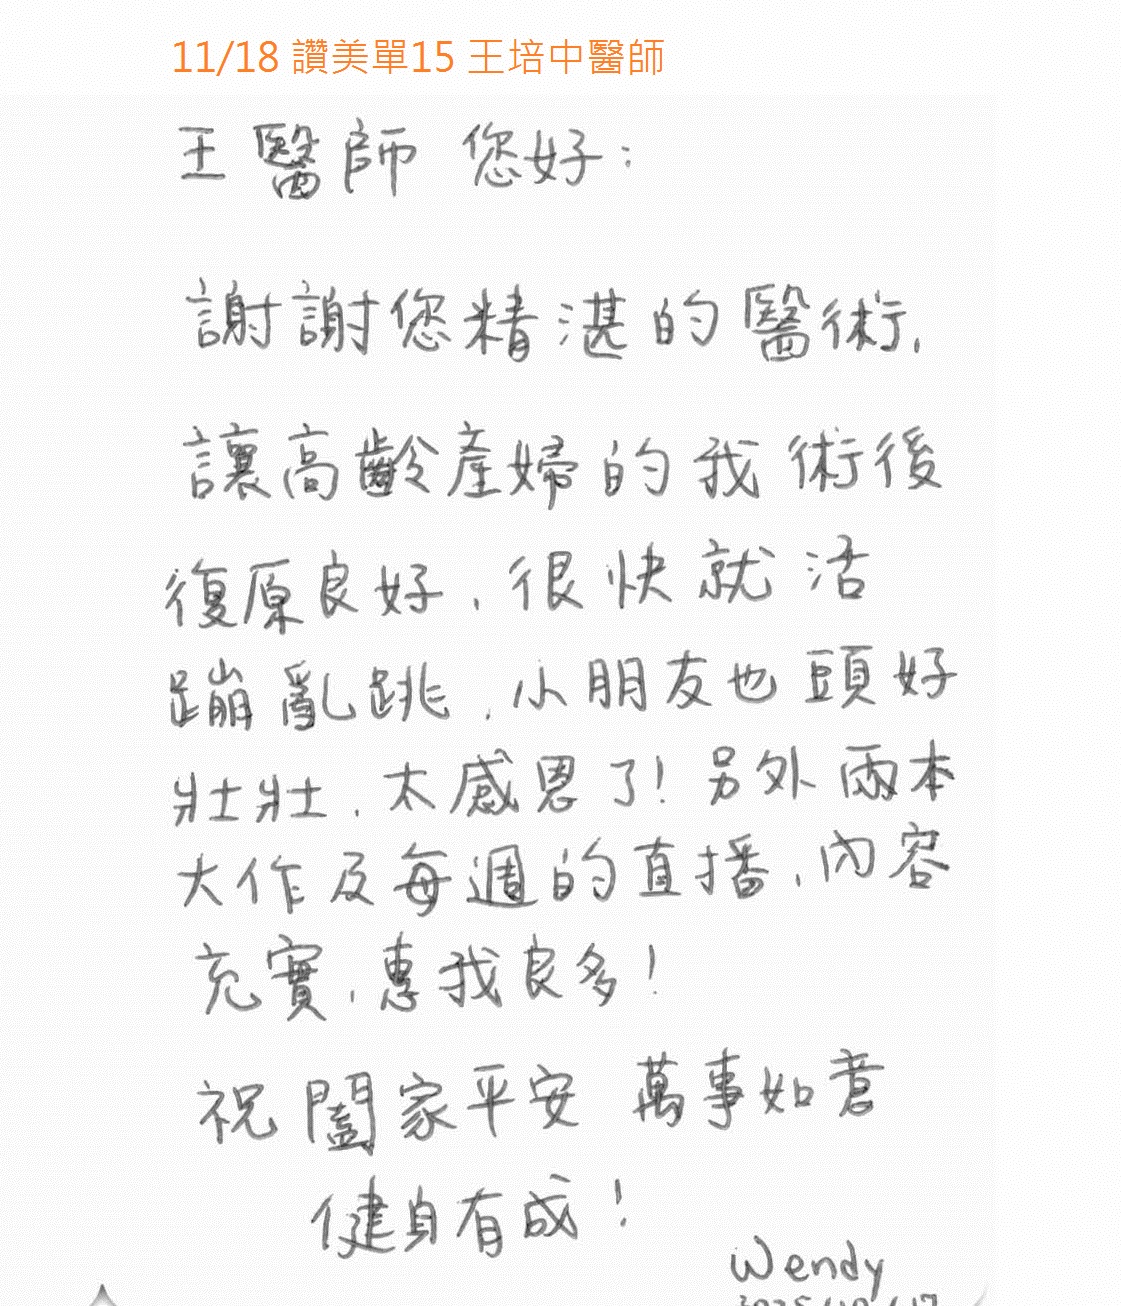 11/18 讚美單15 王培中醫師
王醫師 您好：
謝謝您精湛的醫術，
讓高齡產婦的我術後
復原良好，很快就活
蹦亂跳，小朋友也頭好
壯壯，太感恩了！另外兩本
大作及每週的直播，內容
充實，惠我良多！
祝 闔家平安 萬事如意
健身有成！
Wendy